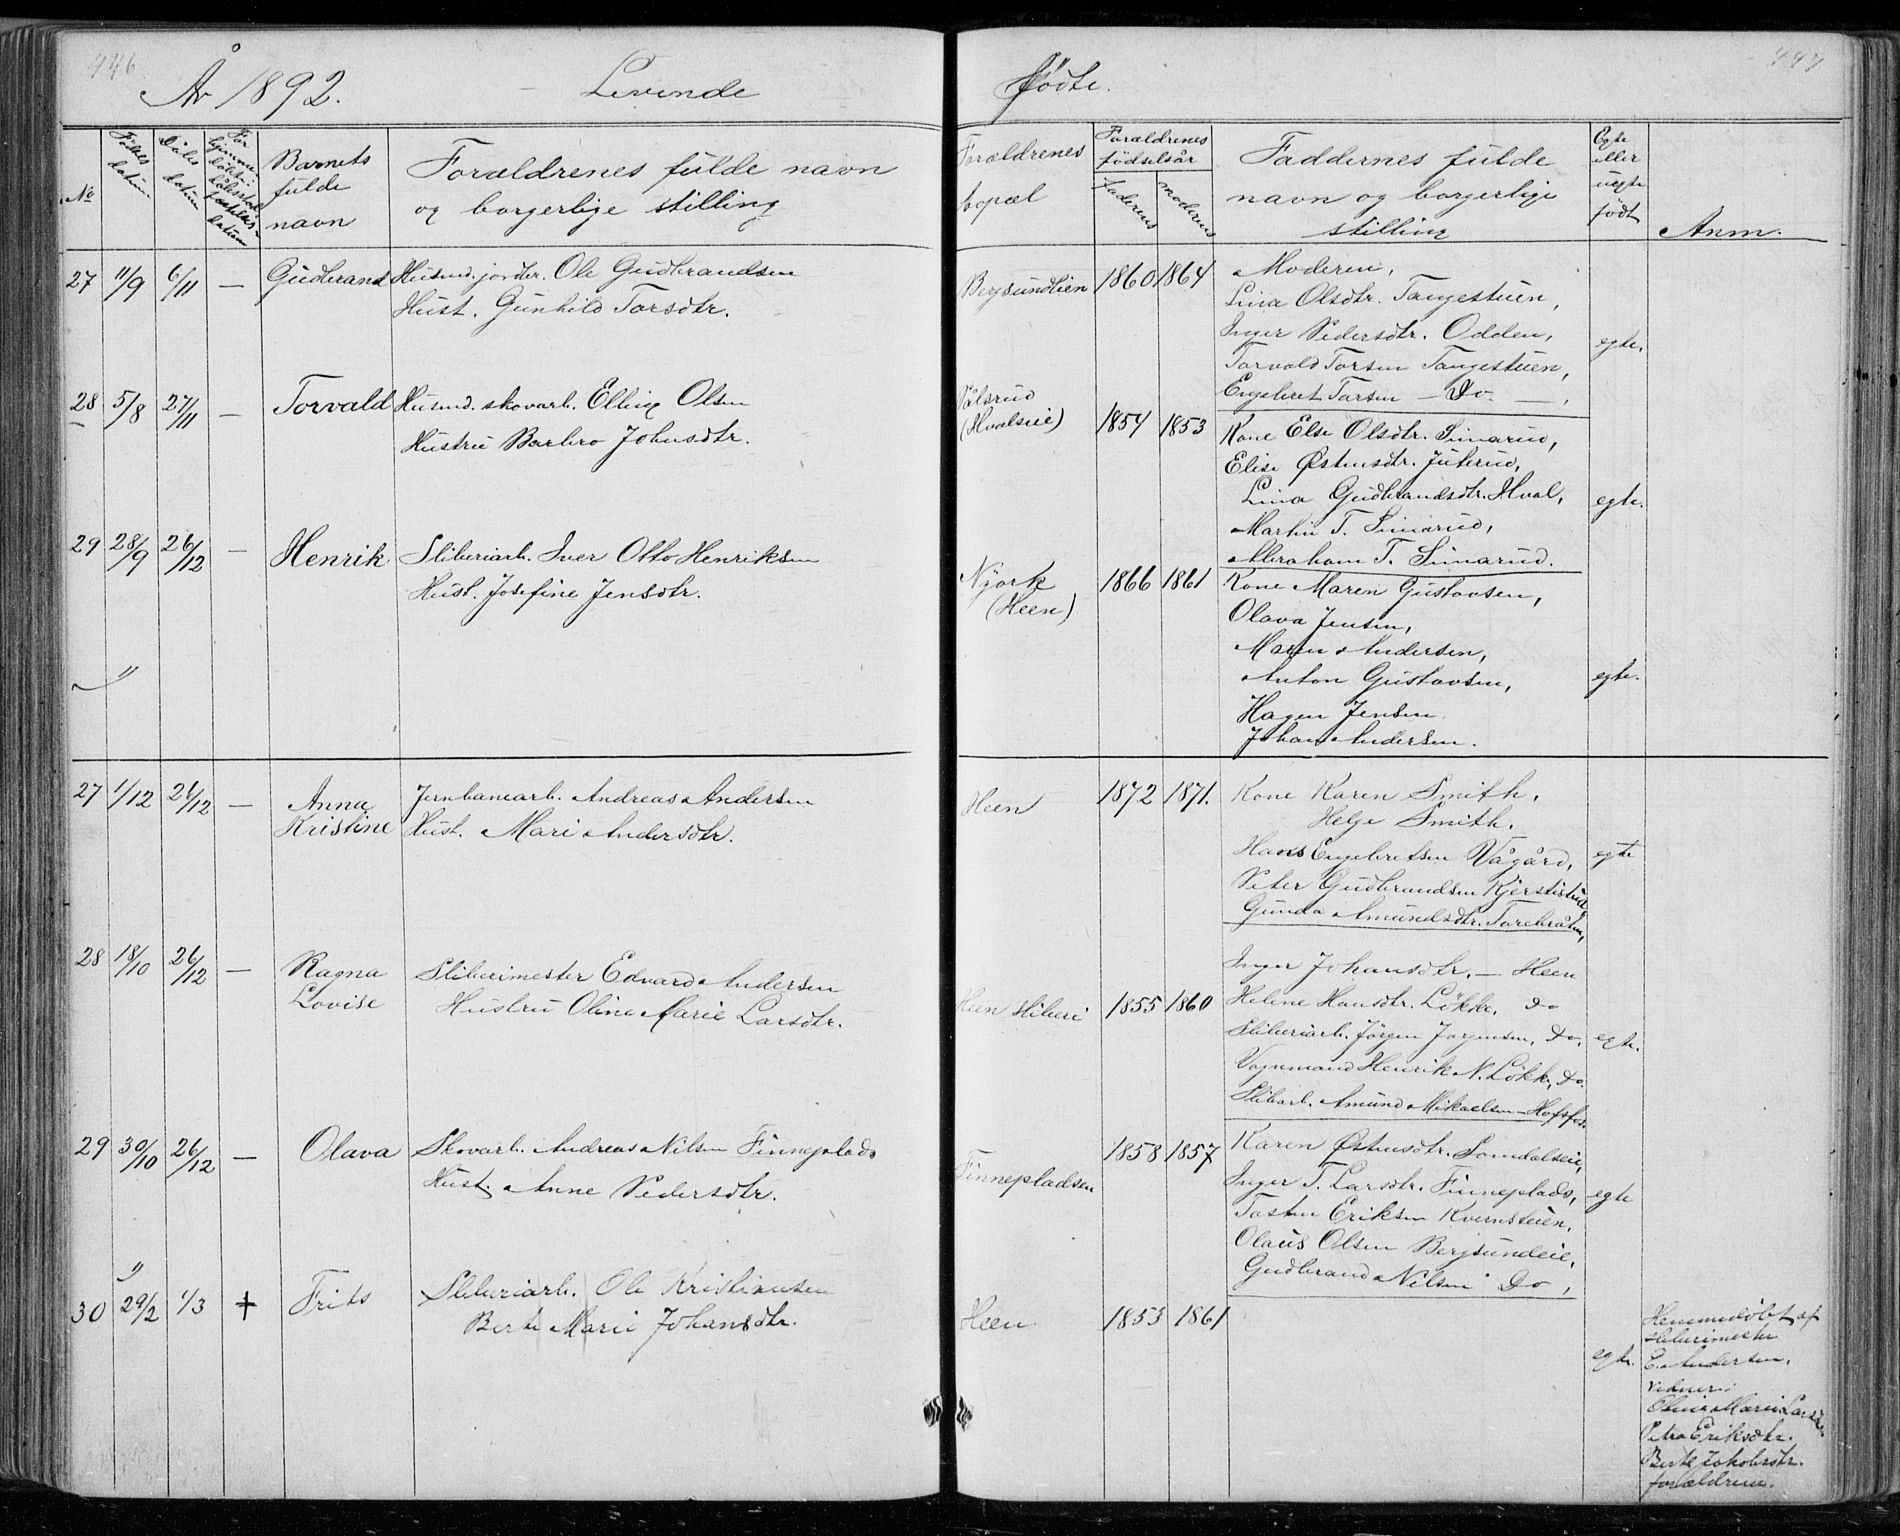 446
År 1892. Levinde
No
Fødsels datum
Dåbs datum
Barnets fulde navn
Forældrenes fulde navn og borgerlige stilling
27 11/9 6/11 — Gudbrand Husmd. jordbr. Ole Gudbrandsen
Hust. Gunhild Torsdtr.
28 5/8 27/11 — Torvald Husmd. skovarb. Elling Olsen
Hustru Barbro Johnsdtr.
29 28/9 26/12 — Henrik Sliberiarb. Iver Otto Henriksen
Hust. Josefine Jensdtr.
27 1/12 26/12 — Anna Jernbanearb. Andreas Andersen
Kristine Hust. Mari Andersdtr.
28 18/10 26/12 — Ragna Sliberimester Edvard Andersen
Lovise Hustru Oline Marie Larsdtr.
29 30/10 26/12 — Olava Skovarb. Andreas Nilsen Finneplads
Hust. Anne Pedersdtr.
30 29/2 1/3 + Frits Sliberiarb. Ole Kristiansen
Berte Marie Johansdtr.
447
Fødte.
Forældrenes bopæl
Forældrenes fødselsår
faderens
moderens
Faddernes fulde navn og borgerlige stilling
Egte eller uegte født
Anm.
Bergsundlien 1860 1864 Moderen,
Lina Olsdtr. Tangestuen,
Inger Pedersdtr. Odden,
Torvald Torsen Tangestuen, egte.
Engebret Torsen — Do — ,
Pålsrud
(Hvalseie) 1854 1853 Kone Else Olsdtr. Simarud,
Elise Østensdtr. Juterud,
Lina Gudbrandsdtr. Hval, egte.
Martin T. Simarud,
Abraham T. Simarud.
Njork
(Heen) 1866 1861 Kone Maren Gustavsen,
Olava Jensen,
Maren Andersen,
Anton Gustavsen, egte.
Hagen Jensen
Johan Andersen.
Heen 1872 1871. Kone Karen Smith,
Helge Smith.
Hans Engebretsen Vågård, egte
Peter Gudbrandsen Kjerstistua
Gunda Amundsdtr. Torebråten,
Inger Johansdtr. — Heen
Heen sliberi 1855 1860 Helene Hansdtr. Løkke, Do
Sliberiarb. Jørgen Jørgensen, Do, egte.
Vognmand Henrik N. Løkk., Do.
Slibarb. Amund Mikaelsen — Hofsfos.
Finnepladsen 1858 1857 Karen Østensdtr. Somdalseie,
Inger T. Larsdtr. Finneplads, egte
Tosten Eriksen Kvernstuen,
Olaus Olsen Bergsundeie,
Gudbrand Nilsen Do,
Heen 1853 1861 egte.
Hjemmedøbt af
sliberimester
E. Andersen.
Vidner:
Oline Marie Larsdtr
Petra Eriksdtr.
Berte Jakobsdtr.
forældrene.